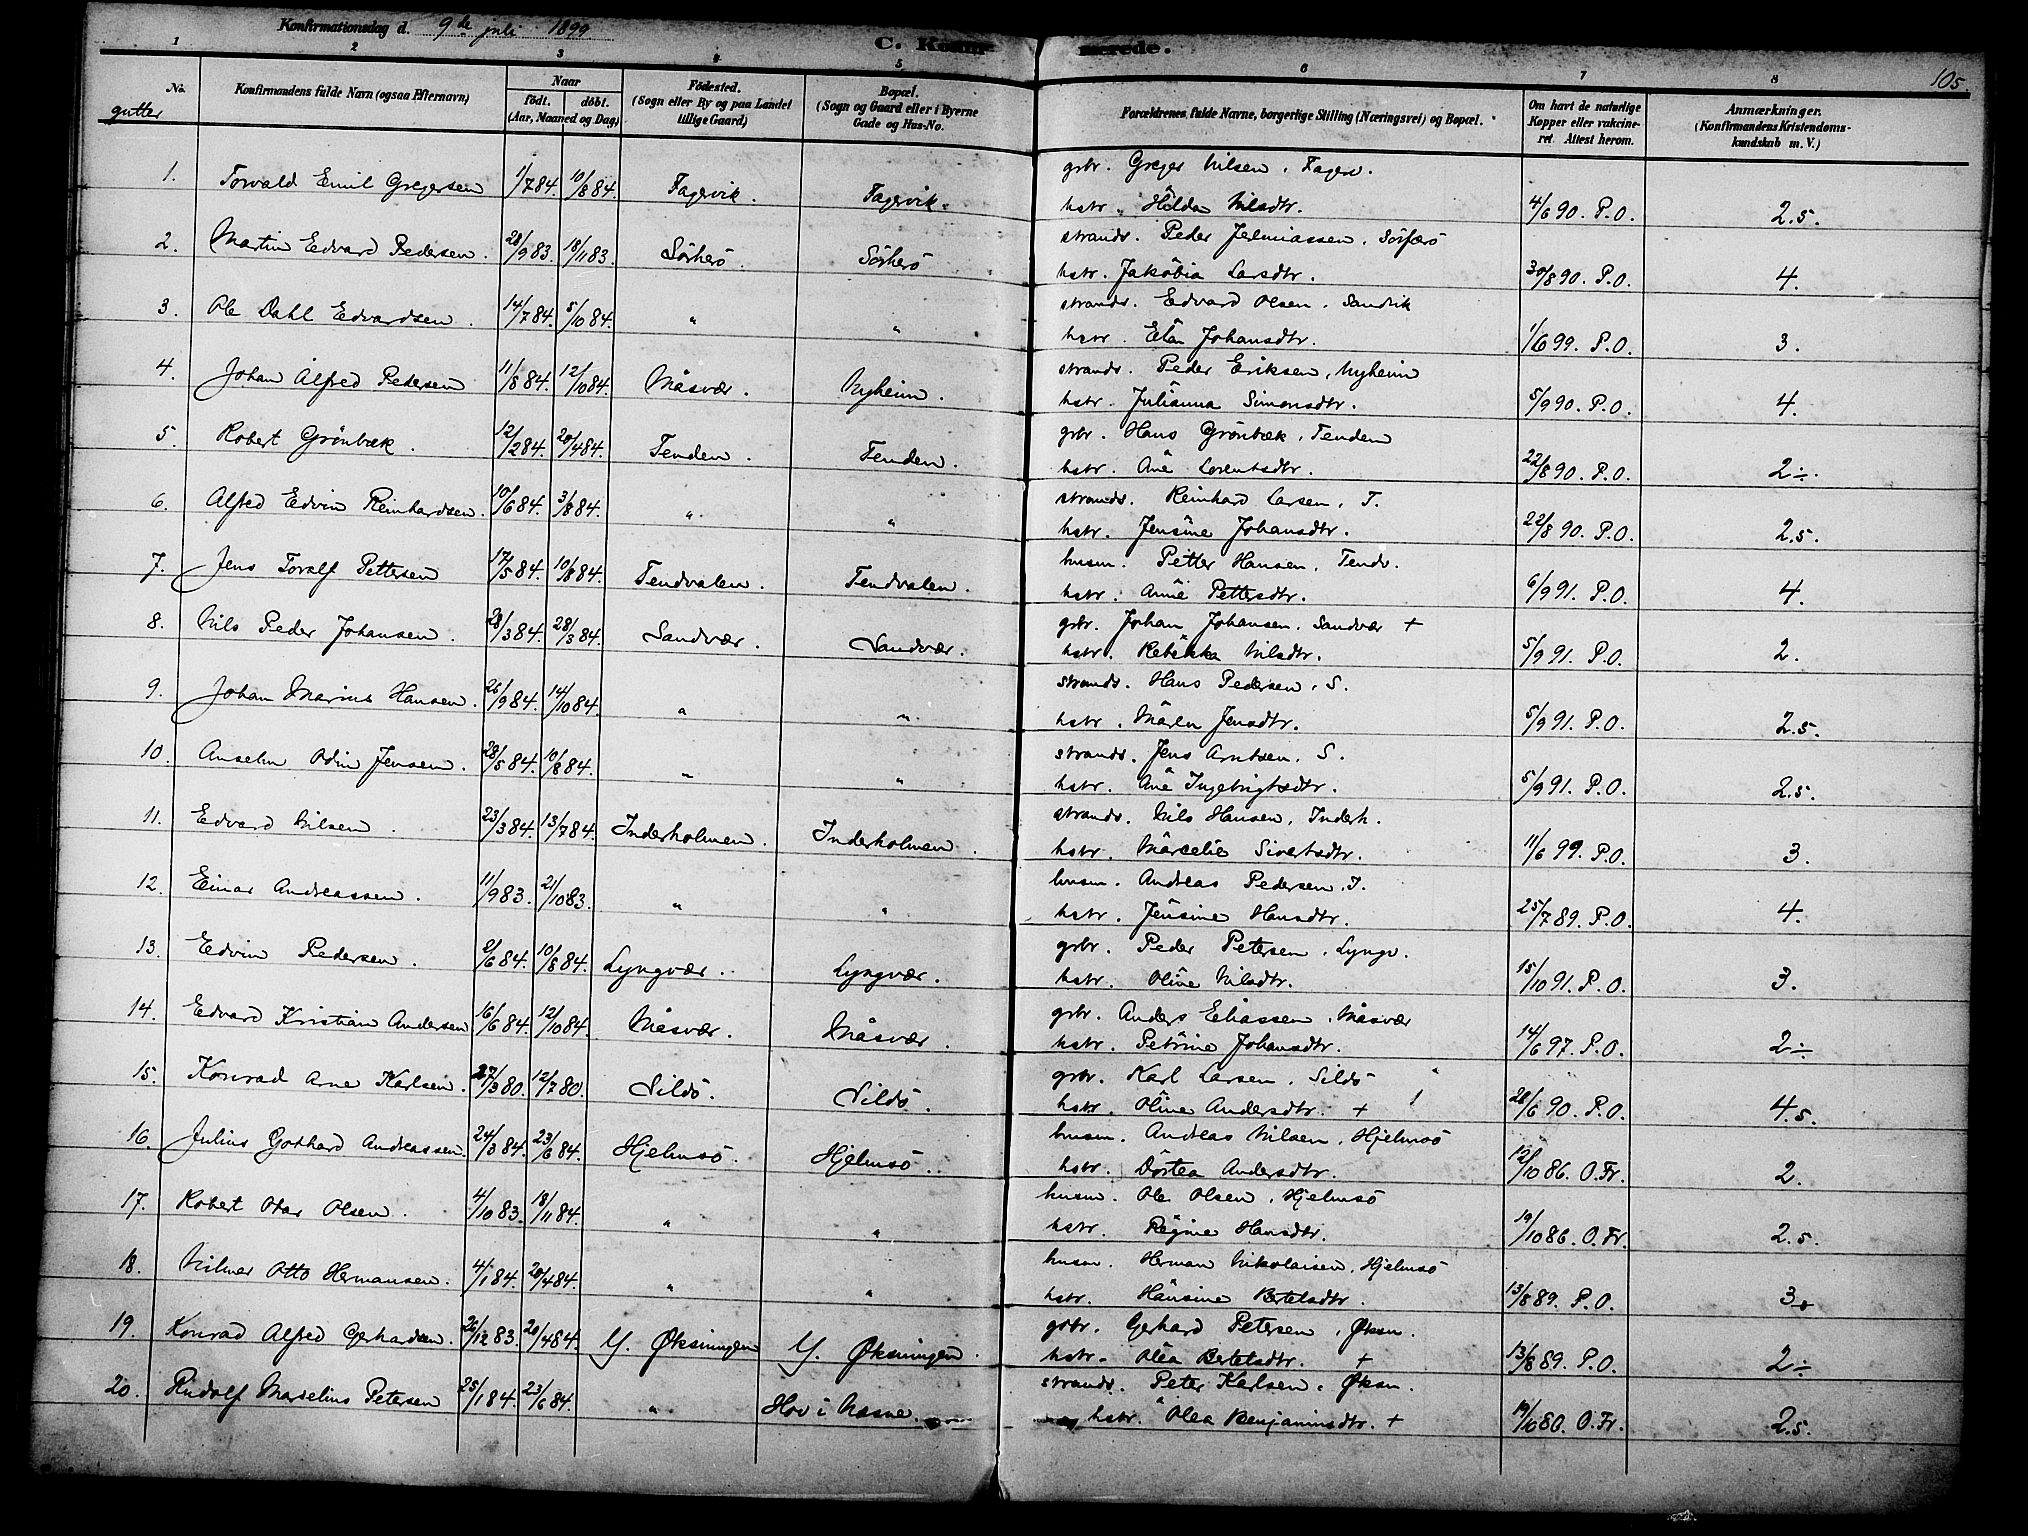 Konfirmationsdag d. 9de juli 1899
C. Konfir merede.
105.
1 2 3 4 5 6 7 8
No. Konfirmandens fulde Navn (ogsaa Efternavn) Naar født. døbt. (Aar, Maaned og Dag) Fødested. (Sogn eller By og paa Landet tillige Gaard) Bopæl. (Sogn og Gaard eller i Byerne Gade og Hus-No. Forældrenes fulde Navne, borgerlige Stilling (Næringsvei) og Bopæl. Om havt de naturlige Kopper eller vakcineret. Attest herom. Anmærkninger. (Konfirmandens Kristendomskundskab m. V.)
gutter
grbr. Greger Nilsen, Fagerv.
1. Torvald Emil Gregersen 1/7 84. 10/8 84. Fagervik. Fagervik.
hstr. Hilda Nilsdtr. 4/6 90. P.O. 2.5.
strands. Peder Jeremiassen, Sörherö
2. Martin Edvard Pedersen. 28/9 83. 18/11 83. Sörherö. Sörherö
hstr. Jakobia Larsdtr. 30/8 90. P.O. 4.
strands. Edvard Olsen, Sandvik
3. Ole Dahl Edvardsen. 14/7 84. 5/10 84. " "
hstr. Elen Johansdtr. 1/6 99. P.O. 3.
strands. Peder Eriksen, Nyheim
4. Johan Alfred Pedersen 11/8 84. 12/10 84. Måsvær. Nyheim.
hstr. Julianna Simonsdtr. 5/9 90. P.O. 4.
grbr. Hans Grönbæk, Tenden
5. Robert Grönbæk. 12/2 84. 20/4 84. Tenden. Tenden.
hstr. Ane Lorentsdtr. 22/8 90. P.O. 2÷.
strands. Reinhard Larsen, T.
6. Alfred Edvin Reinhardsen. 10/6 84. 3/8 84. " "
hstr. Jensine Johansdtr. 22/8 90. P.O. 2.5.
husm. Petter Hansen, Tendv.
7. Jens Toralf Pettersen 17/5 84. 10/8 84. Tendvalen. Tendvalen.
hstr. Anne Pettersdtr. 6/9 91. P.O. 4.
grbr. Johan Johansen, Sandvær +
8. Nils Peder Johansen. 28/3 84. 28/3 84. Sandvær. Sandvær.
hstr. Rebekka Nilsdtr. 5/9 91. P.O. 2.
strands. Hans Pedersen, S.
9. Johan Marius Hansen. 26/9 84. 14/10 84. " "
hstr. Maren Jensdtr. 5/9 91. P.O. 2.5.
strands. Jens Arntsen, S.
10. Anselm Odin Jensen. 28/5 84. 10/8 84. " "
hstr. Ane Ingebrigtsdtr. 5/9 91. P.O. 2.5.
strands. Nils Hansen, Inderh.
11. Edvard Nilsen. 23/3 84. 13/7 84. Inderholmen. Inderholmen.
hstr. Marcelie Sivertsdtr. 11/6 99. P.O. 3.
husm. Andreas Pedersen, I.
12. Einar Andreassen. 11/9 83. 21/10 83. " "
hstr. Jensine Hansdtr. 25/7 89. P.O. 4.
grbr. Peder Petersen, Lyngv.
13. Edvin Pedersen. /6 84. 10/8 84. Lyngvær. Lyngvær.
hstr. Oline Nilsdtr. 15/10 91. P.O. 3.
grbr. Anders Eliassen, Måsvær
14. Edvard Kristian Andersen 16/6 84. 12/10 84. Måsvær. Måsvær.
hstr. Petrine Johansdtr. 14/6 97. P.O. 2÷
grbr. Karl Larsen, Sildö
15. Konrad Arne Karlsen. 27/3 80. 12/7 80. Sildö. Sildö.
hstr. Oline Andersdtr. + 28/6 90. P.O. 4.5.
husm. Andreas Nilsen, Hjelmsö
16. Julius Gothard Andreassen. 24/3 84. 23/6 84. Hjelmsö. Hjelmsö.
hstr. Dortea Andersdtr. /10 86. O.Fr. 2.
husm. Ole Olsen, Hjelmsö
17. Robert Olsen. 4/10 83. 18/11 84. " "
hstr. Regine Hansdtr. 19/10 86. O.Fr. 2.5.
husm. Herman Nikolaisen, Hjelmsö
18. Otto Hermansen. 4/1 84. 20/4 84. " "
hstr. Hansine Bertelsdtr. 13/8 89. P.O. 3.
grbr. Gerhard Petersen, Øksn.
19. Konrad Alfred Gerhardsen. 26/12 83. 20/4 84. Y. Øksningen Y. Øksningen.
hstr. Olea Bertelsdtr. + 13/8 89. P.O. 2÷
strands. Peter Karlsen, Øksn.
20. Rudolf Marselius Petersen 25/1 84. 23/6 84. " Hov i Næsne.
hstr. Olea Benjaminsdtr. + 19/10 86. O.Fr. 2.5.